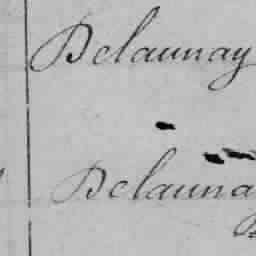 Delaunay
Delauna